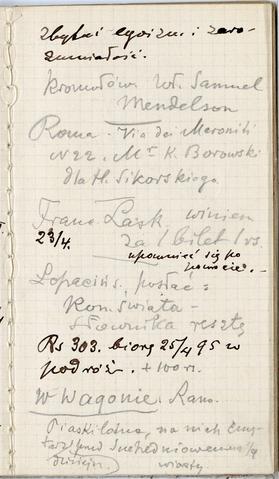 zbytni egoizm i zaro-
zumiałość.
Kromołów. Wł. Samuel
Mendelson
Roma - Via dei Maroniti
N 22. Mr K. Borowski
dla H. Sikorskiego
Franc. Łask. winien
23/4. za 1 bilet 1 rs.
upomnieć się po
powrocie. -
Łopacińs. posłać =
Kom. Świata -
Słownika resztę
Rs 303. biorę 25/4 95 w
podróż. + 100 rs.
W Wagonie. Rano.
Piaski lotne, na nich